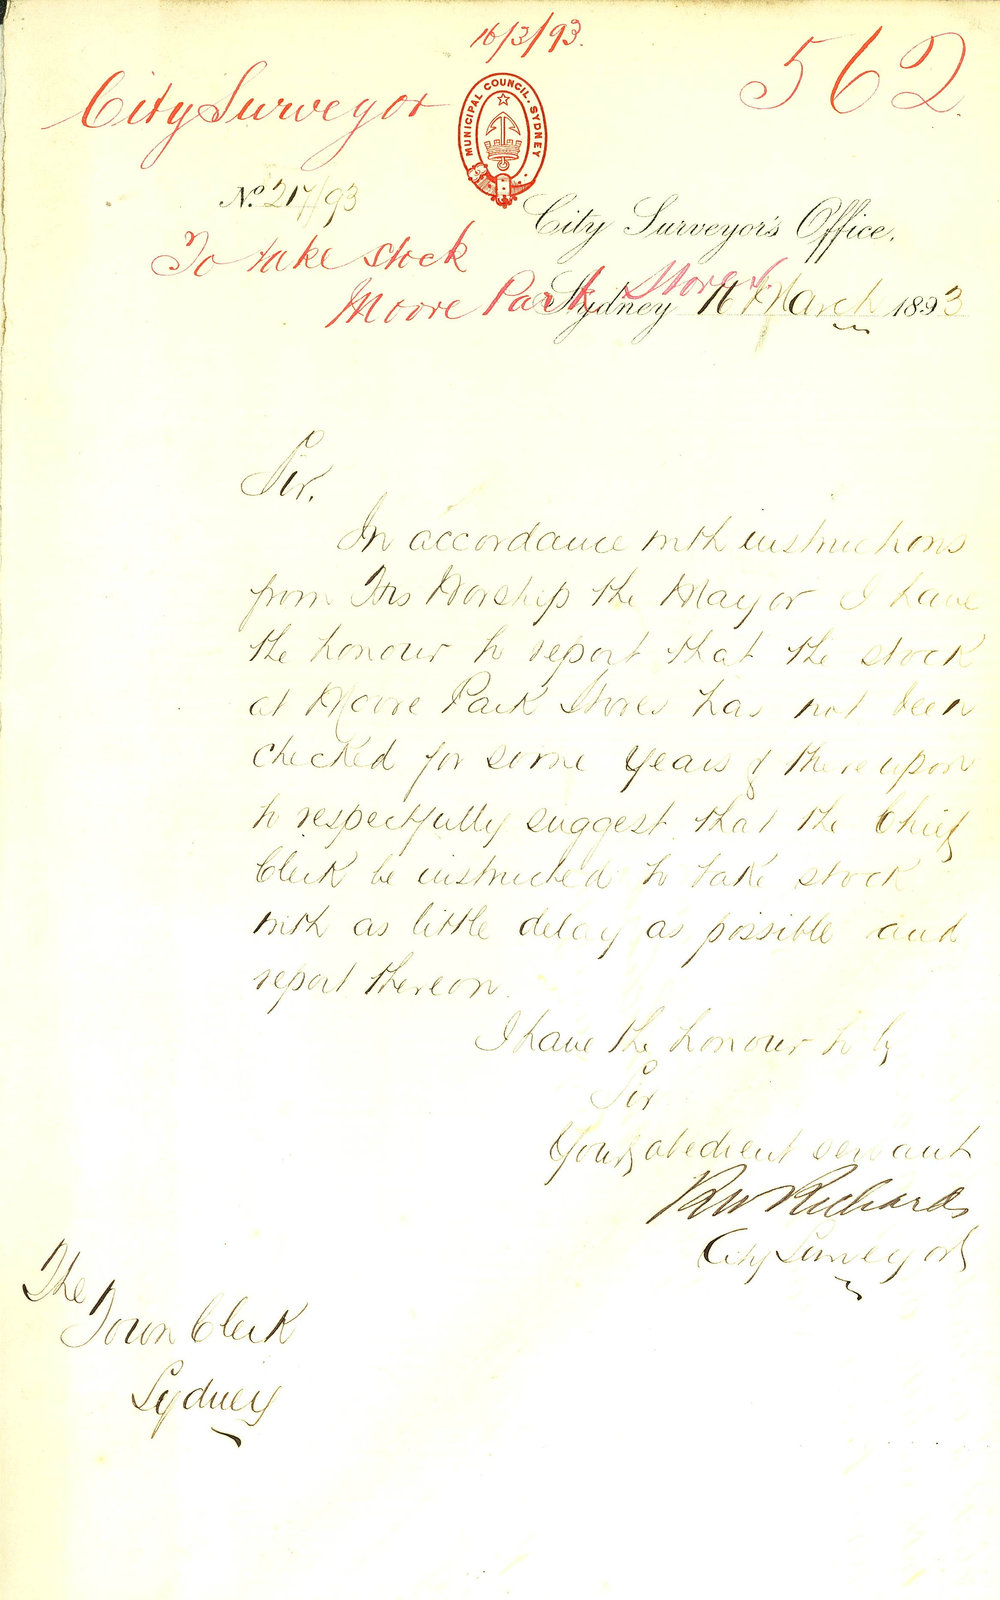 16/3/93.
562.
City Surveyor
MUNICIPAL COUNCIL. SYDNEY
No. 217/93
City Surveyor's Office,
To take stock
Moore Park Stores.
Sydney 16 March 1893
Sir,
In accordance with instructions
from His Worship the Mayor I have
the honour to report that the stock
at Moore Park Stores has not been
checked for some years & thereupon
to respectfully suggest that the Chief
Clerk be instructed to take stock
with as little delay as possible and
report thereon.
I have the honour to be
Sir
Your obedient servant
RW Richards
City Surveyor
The
Town Clerk
Sydney